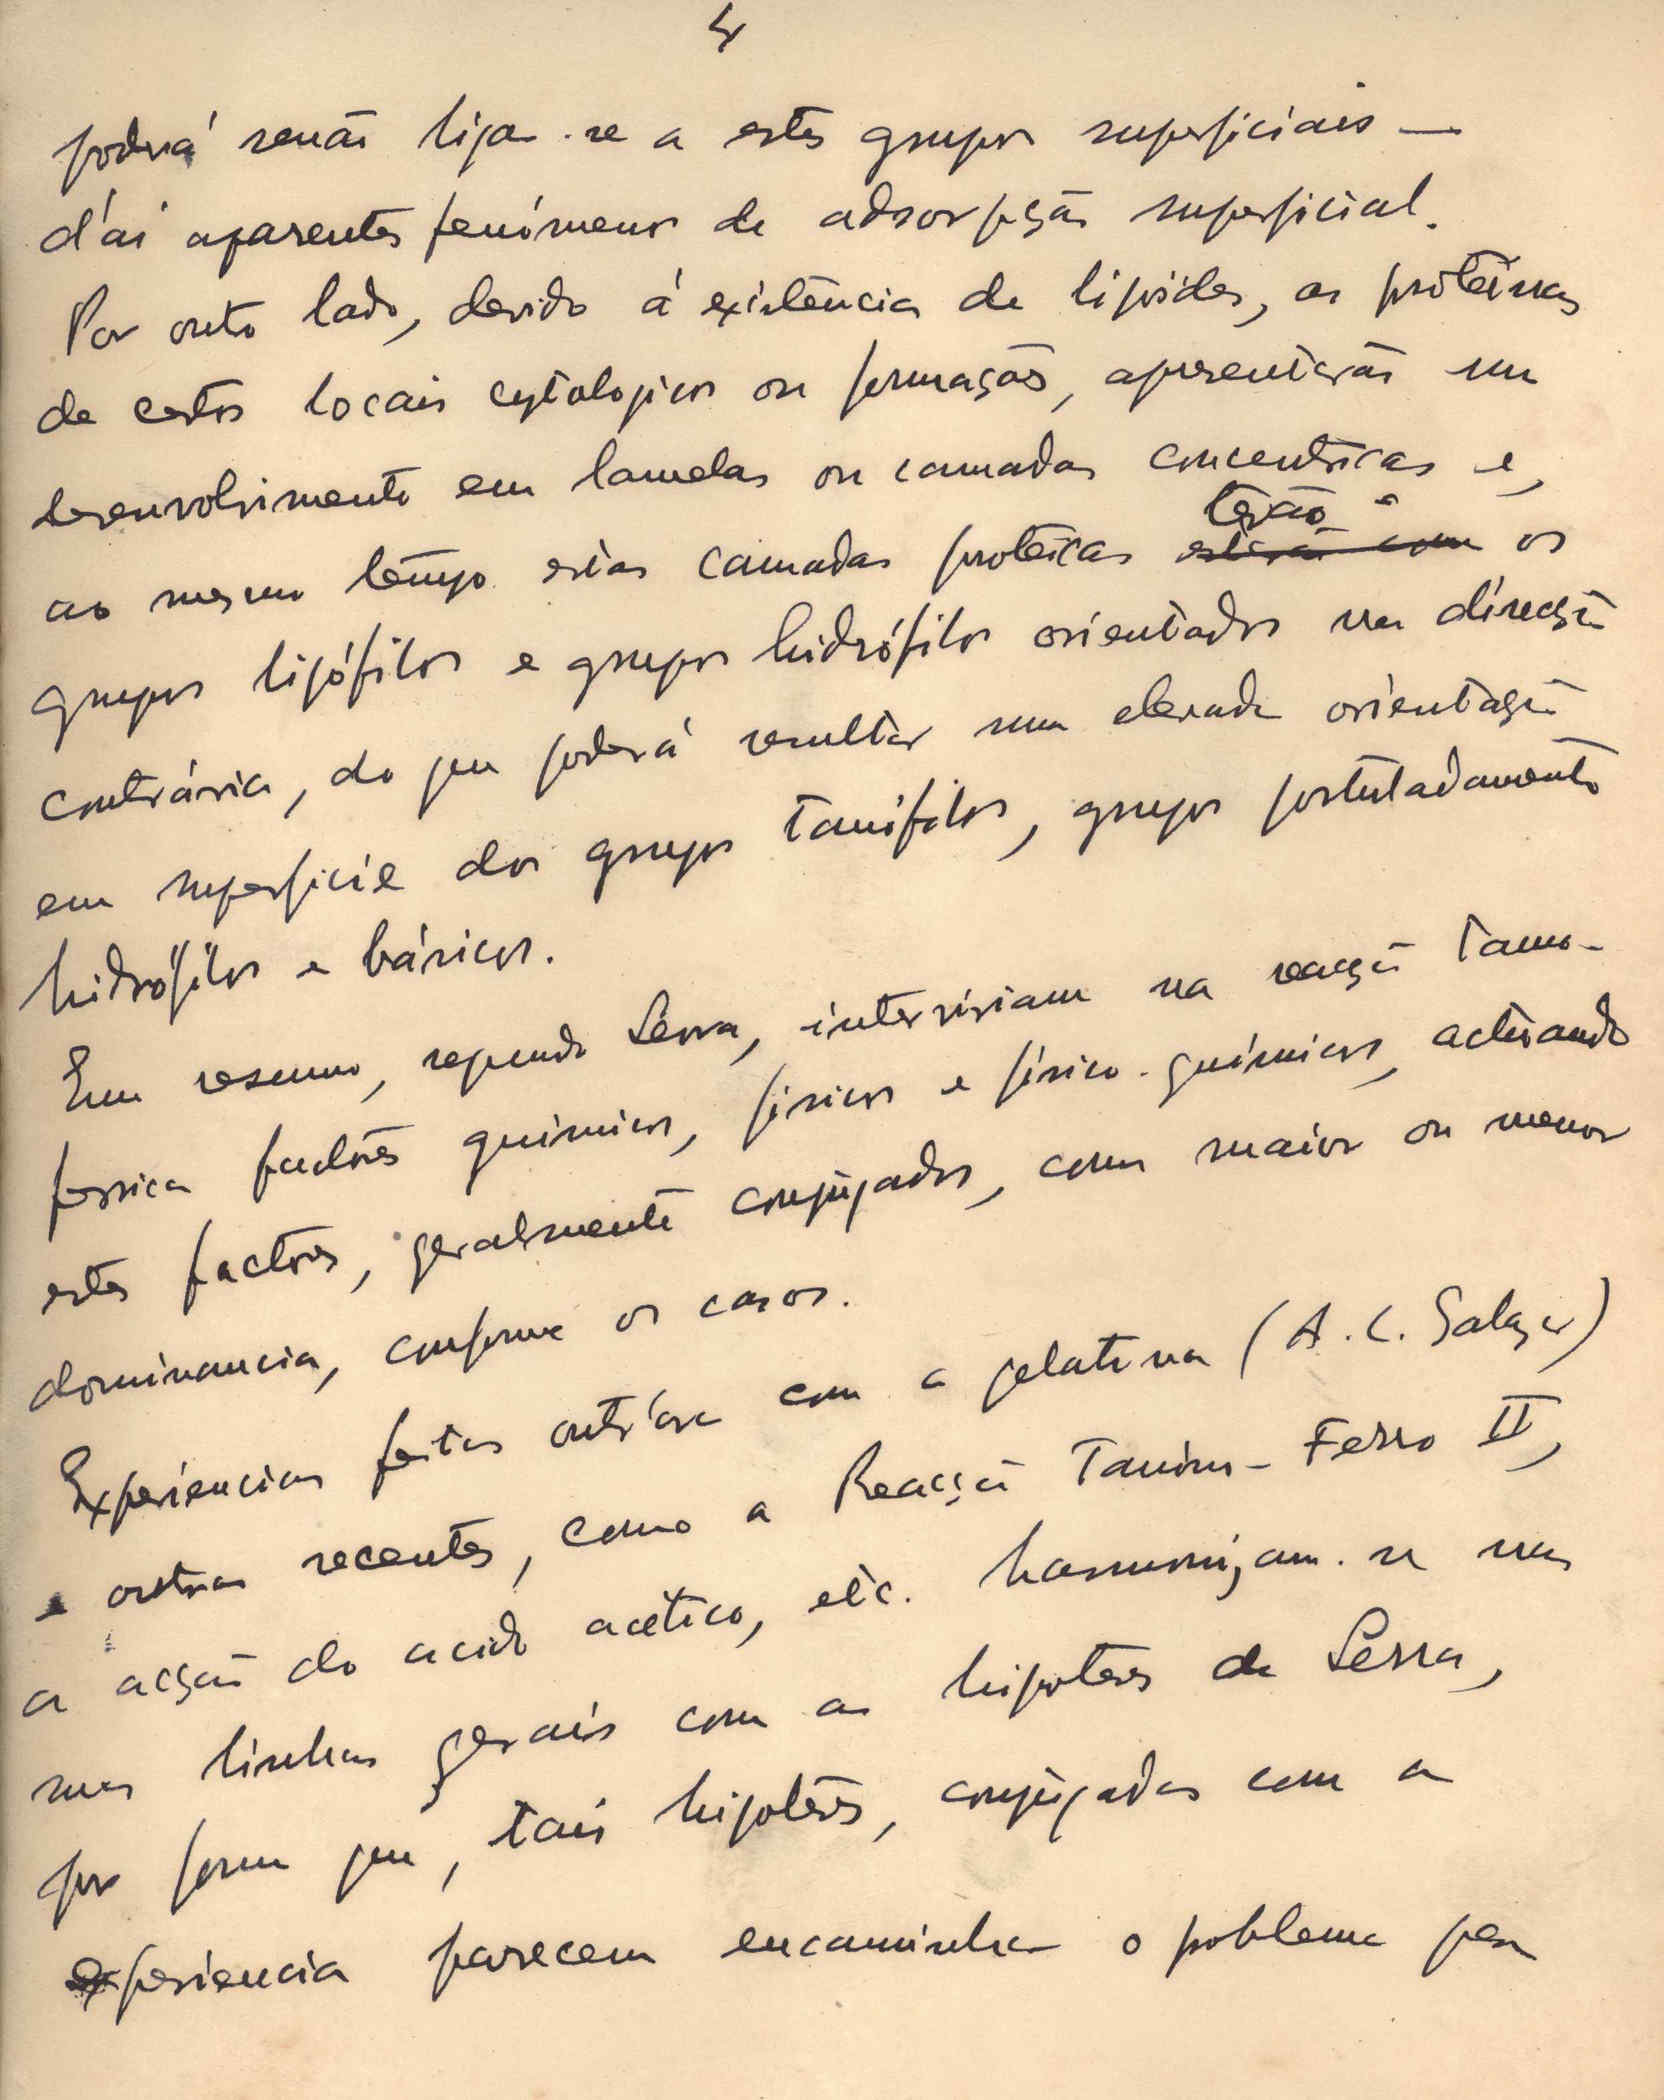 4
poderá senão ligar-se a estes grupos superficiais —
d'aí aparentes fenómenos de adsorpção superficial.
Por outro lado, devido á existência de lipóides, as proteínas
de certos locais cytologicos ou formações, apresentarão um
desenvolvimento em lamelas ou camadas concentricas e,
terão
ao mesmo tempo estas camadas proteicas estarão com os
grupos lipófilos e grupos hidrófilos orientados na direcção
contrária, do que poderá resultar uma elevada orientação
em superficie dos grupos tanófilos, grupos postuladamente
hidrófilos e básicos.
Em resumo, segundo Serra, interviriam na reacção tano-
ferrica factores quimicos, fisicos e fisico-químicos, activando
estes factores, geralmente conjugados, com maior ou menor
dominancia, conforme os casos.
Experiencias feitas outróra com a gelatina (A. L. Salazar)
e outras recentes, como a Reacção Tanino-Ferro II,
a acção do acido acético, etc. harmonizam-se nas
suas linhas gerais com as hipoteses de Serra,
por forma que, tais hipoteses, conjugadas com a
experiencia parecem encaminhar o problema para